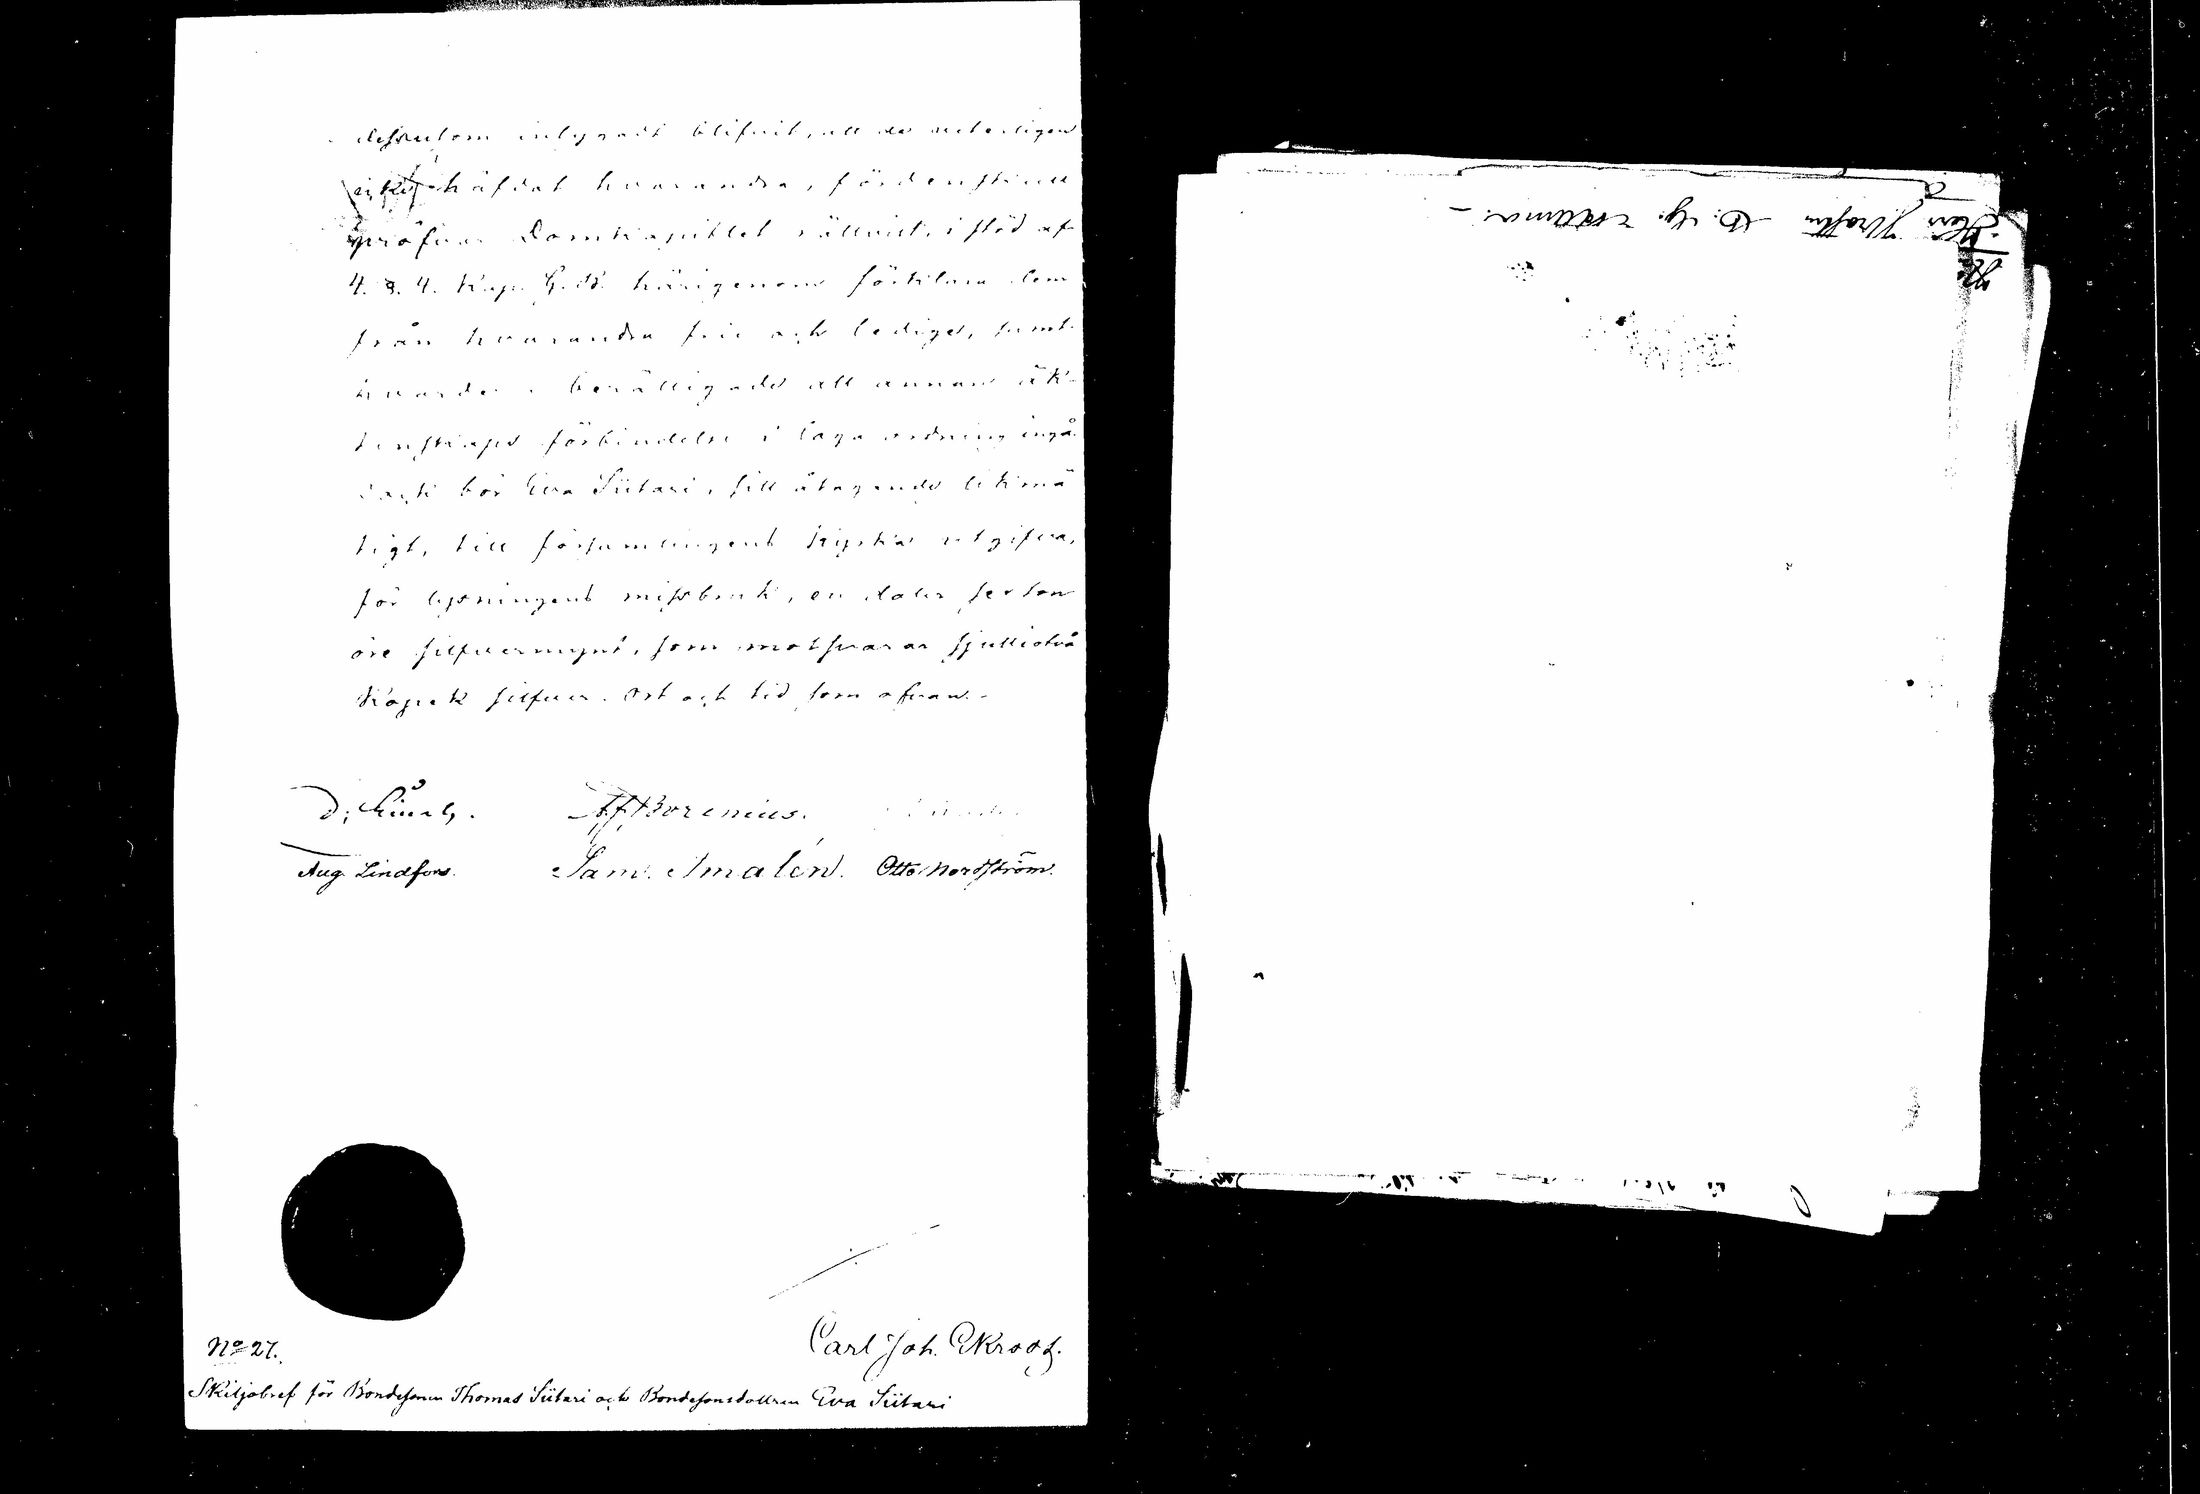 dessutom intygadt blifvit, att de veterligen
icke häfdat hvarandra, fördenskull
pröfvar Domkapitlet rättvist, i stöd af
4. §. 4. Kap. G. B. härigenom förklara dem
från hvarandra frie och lediga, samt
hvardera berättigade att annan äk-
tenskaps förbindelse i laga ordning ingå.
dock bör Eva Siitari, sitt åtagande likmä
tigt, till församlingens kyrka utgifva,
för lysningens missbruk, en daler sexton
öre silfvermynt, som motsvarar sjuttiotvå
Kopek silfver. Ort och tid som ofvan.-
A. F. Borenius.
Aug. Lindfors. Sam. Smalén. Otto Nordström.
Carl Joh. Ekroos.
No 27.
Skiljobref för Bondesonen Thomas Siitari och Bondesonsdottren Eva Siitari